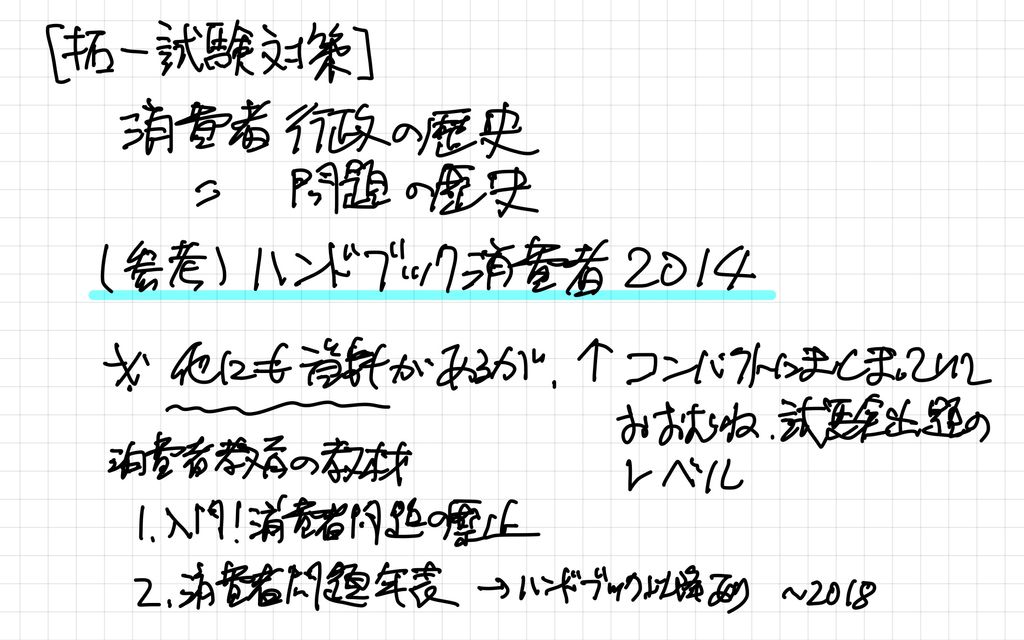 [拓一試験対策]
消費者行政の歴史
〃 問題の歴史
(参考)ハンドブック消費者2014
※ 他にも資料があるが、↑コンパクトにまとまっていて
おおむね、試験出題の
レベル
消費者教育の教材
1.入門!消費者問題の歴史
2.消費者問題年表 →ハンドブック以降あり ~2018